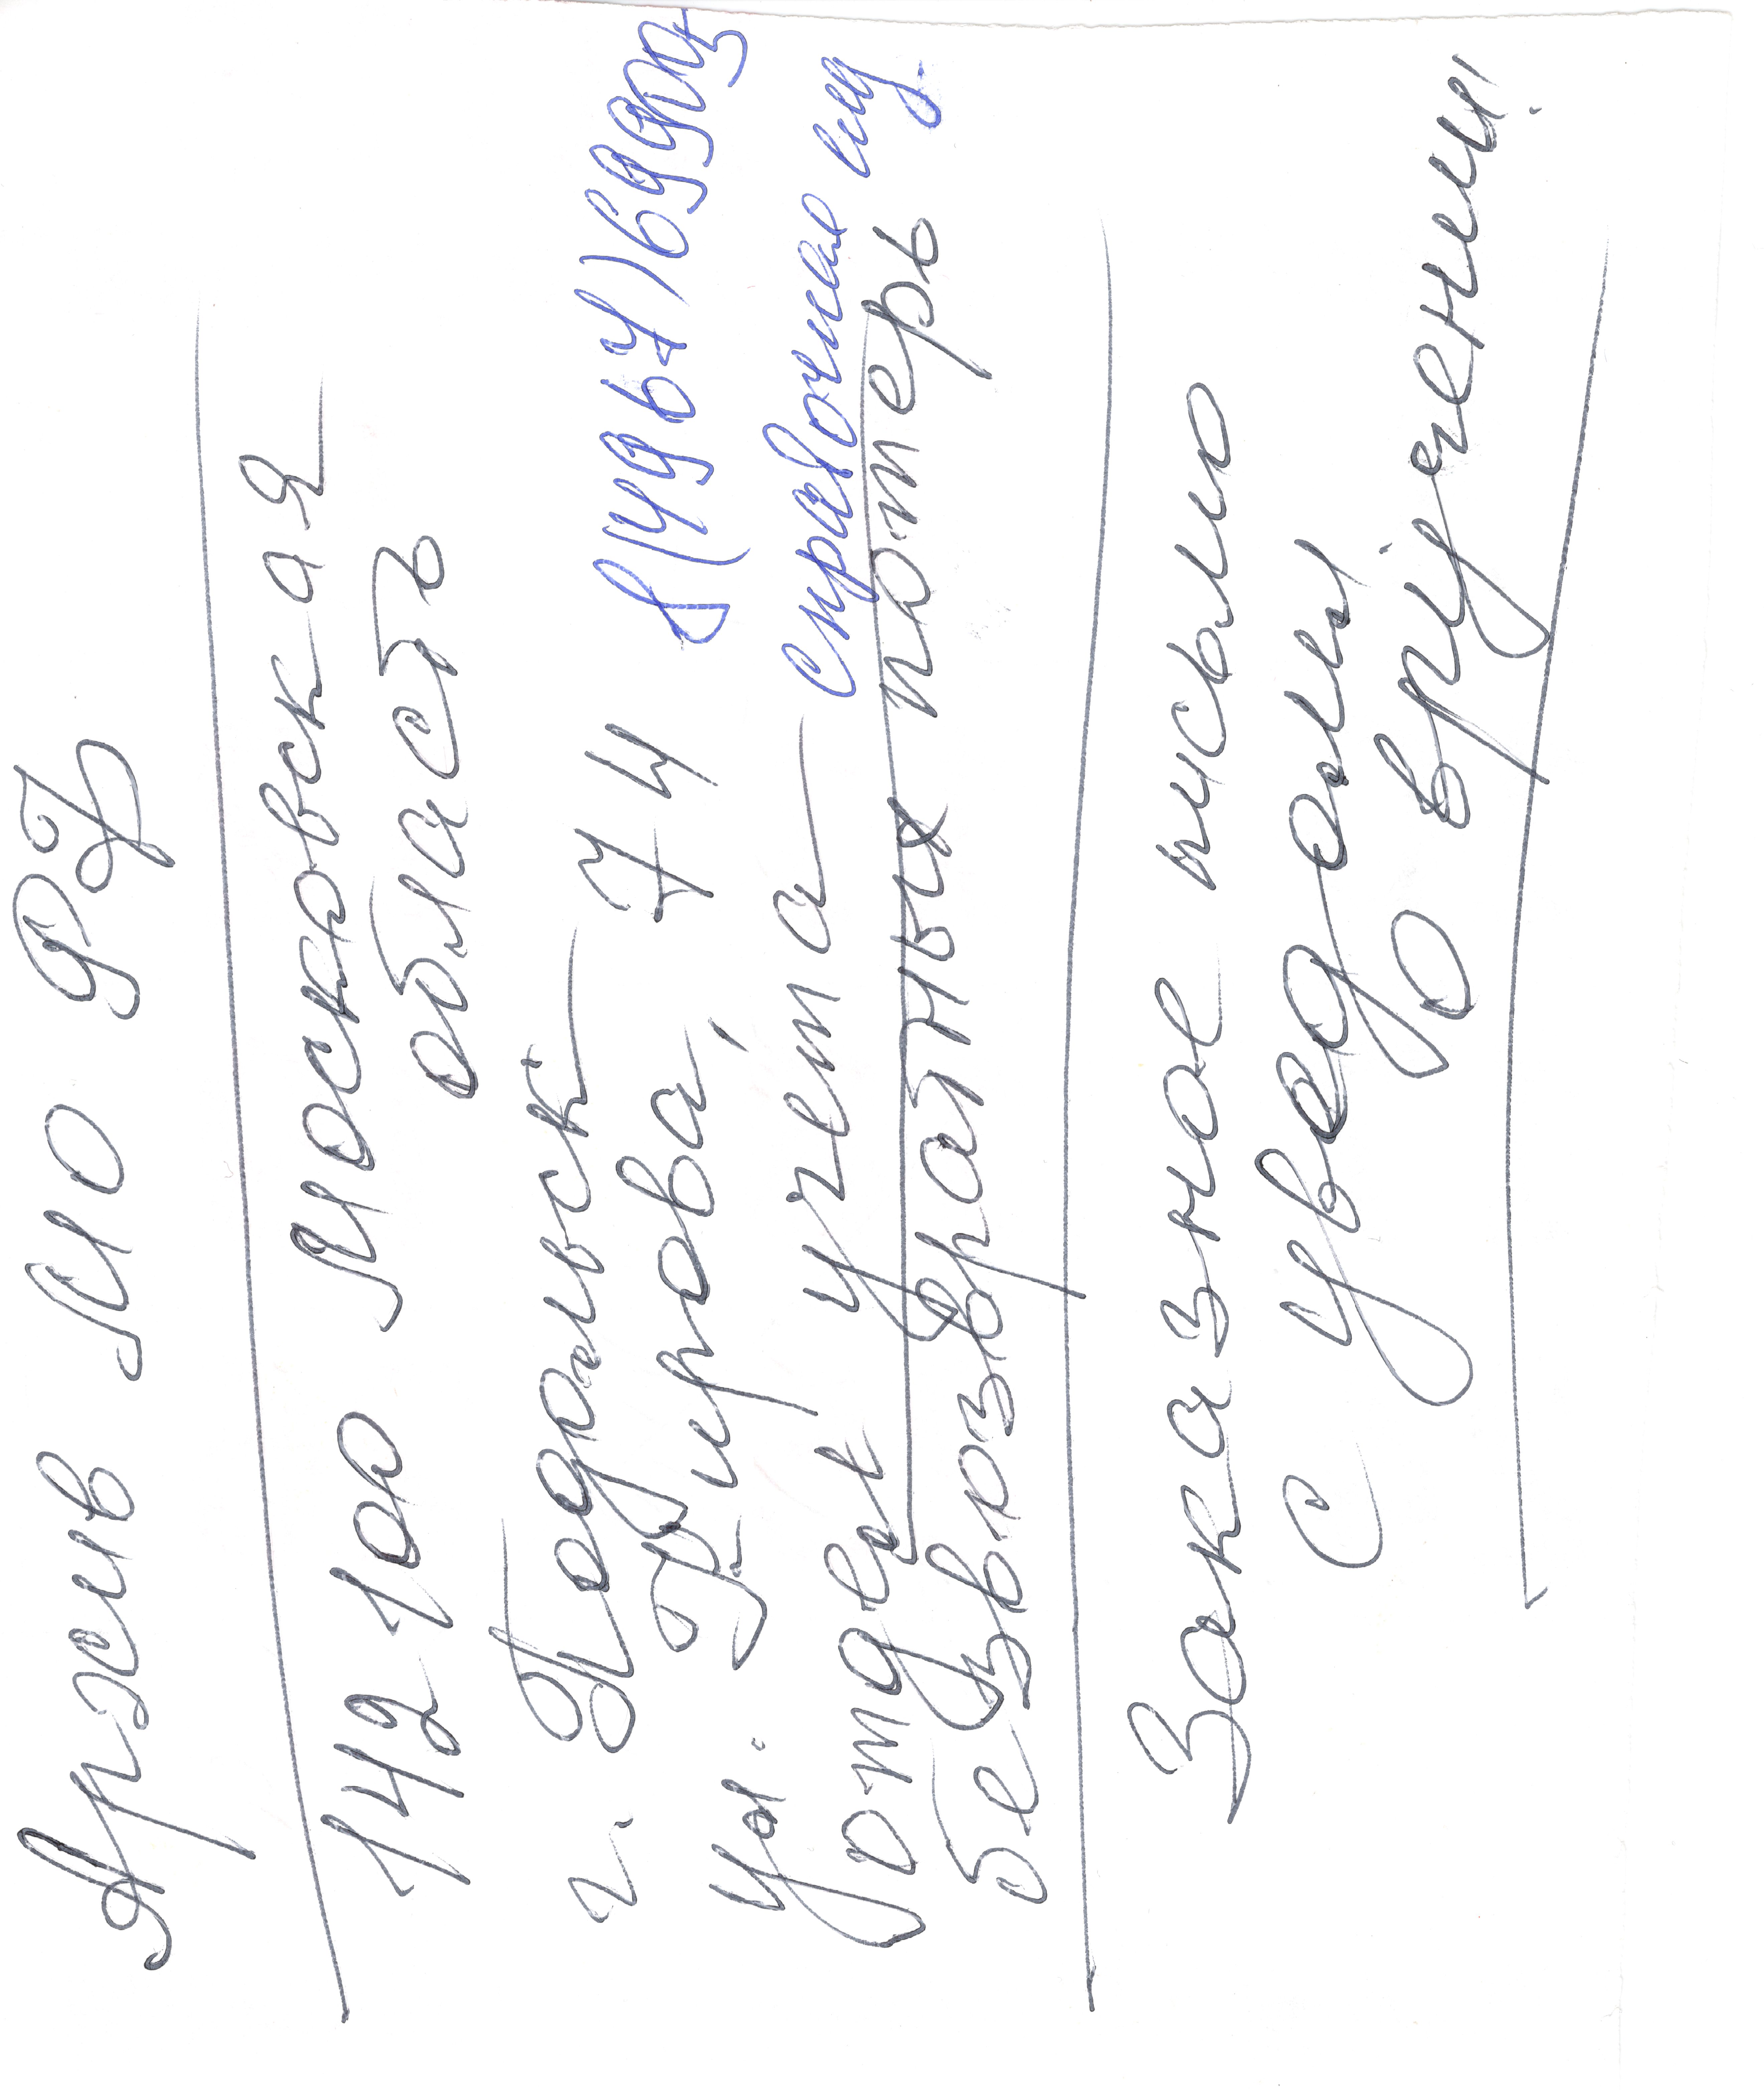 Архив МО РФ
142100 Московская
область
г. Подольск
ул. Кирова, 74
8(4967)699003
отдел учета
справочная
безвозвратных потерь
Заказное письмо
с уведомл.
о вручении!